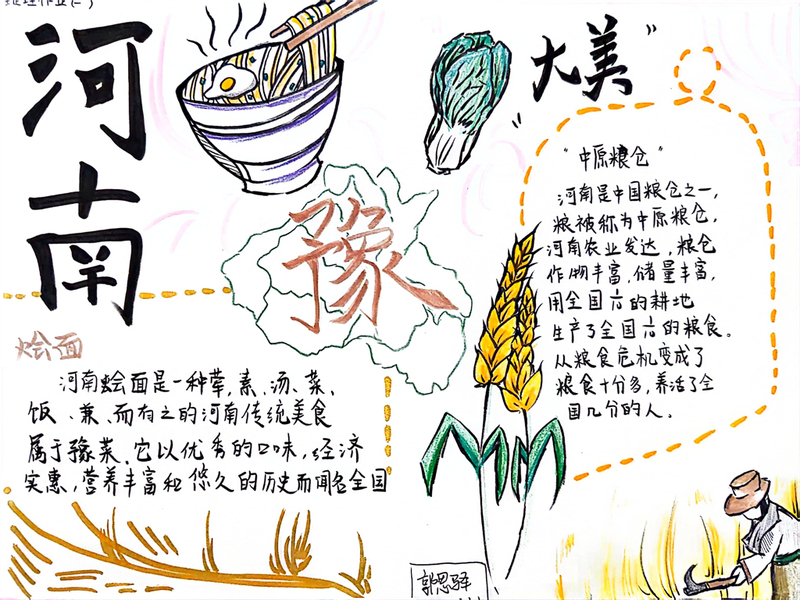 地理作业(一)
河南
大美"
豫
烩面
河南烩面是一种荤,素、汤、菜、
饭、兼、而有之的河南传统美食
属于豫菜、它以优秀的口味,经济
实惠,营养丰富和悠久的历史而闻名全国
"中原粮仓"
河南是中国粮仓之一,
粮被称为中原粮仓,
河南农业发达,粮仓
作物丰富,储量丰富,
用全国六的耕地
生产了全国六的粮食。
从粮食危机变成了
粮食十分多,养活了全
国几分的人。
郭思驿